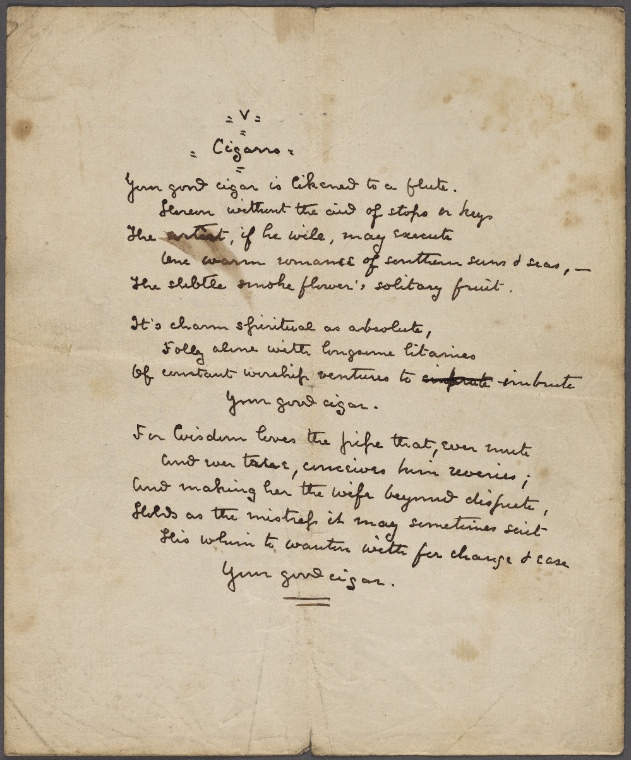 V
Cigarro
Your good cigar is likened to a flute.
Hereon without the aid of stops or keys
The artist, if he will, may execute
One warm romance of southern suns & seas, —
The subtle smoke flower's solitary fruit.
It's charm spiritual as absolute,
Folly alone with longsome litanies
Of constant worship ventures to imbrute
Your good cigar.
For Wisdom loves the pipe that, ever mute
And ever true, conceives him reveries;
And making her the wife beyond dispute,
Holds as the mistress it may sometimes suit
His whim to wanton with for change & ease
Your good cigar.